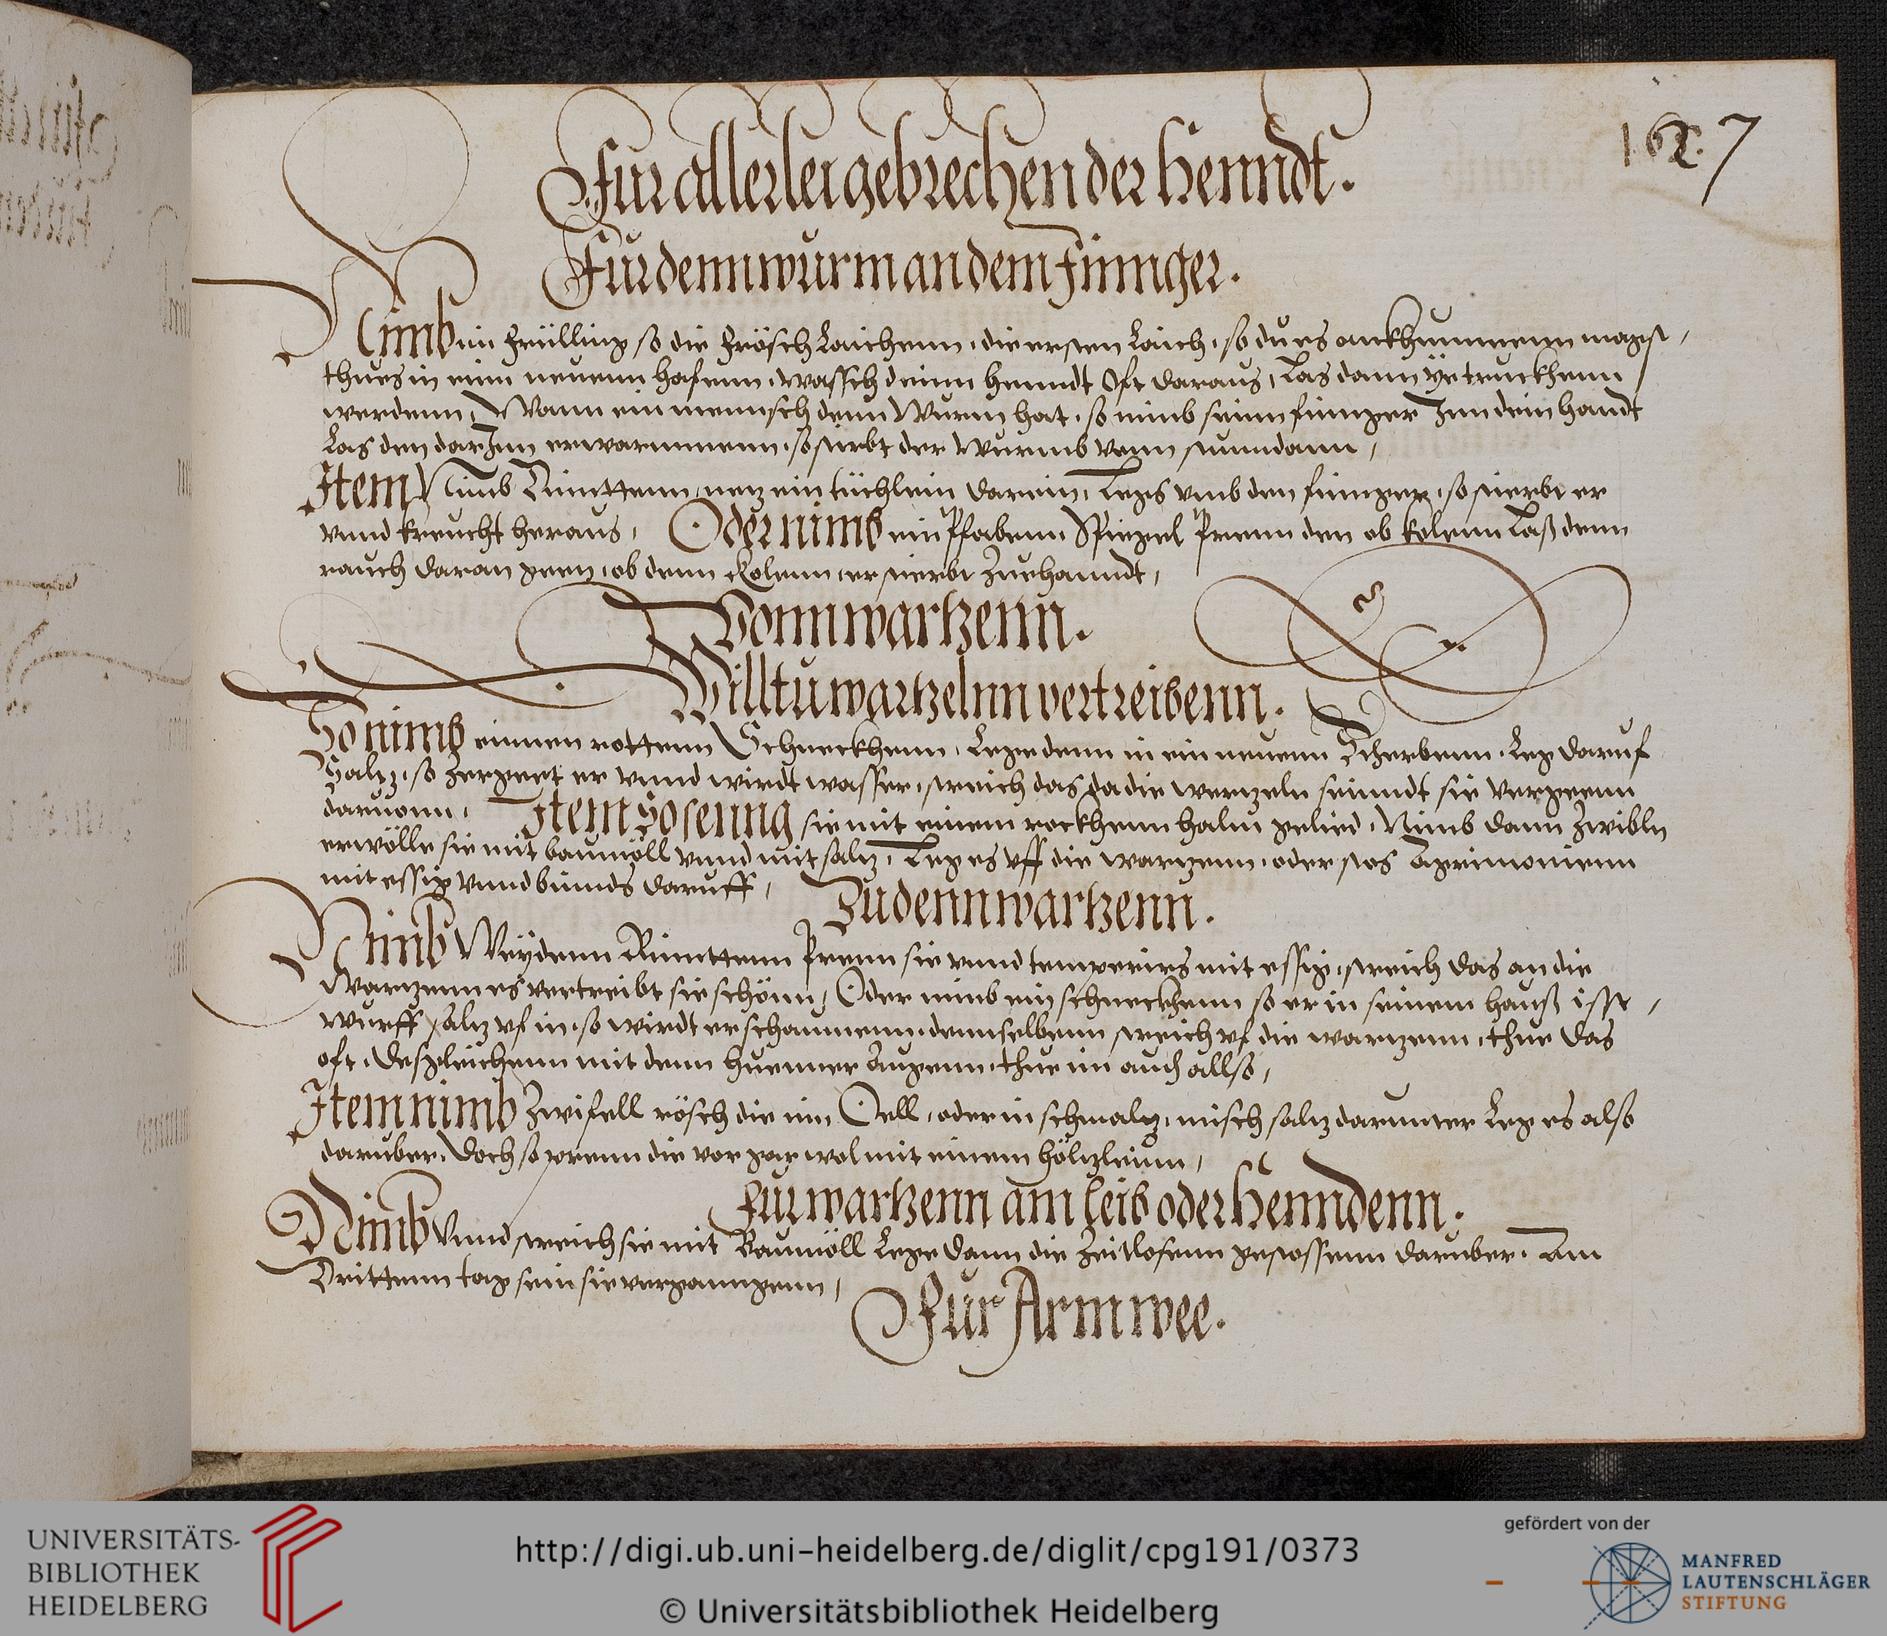 162.7
Fur allerlei gebrechen der Henndt.
Fur denn wurm an dem Finnger.
Nimb im Früelling so die Frösch Laichenn, die ersten Laich, so du es ankhummenn magst,
thues in einn neuenn hafenn, wassch deinn henndt oft daraus, Las dann ye truckhenn
werdenn, Wann ein mennsch denn Wurm hat, so nimb seinn finnger Inn dein handt
Las den darInn erwarmmenn, so stirbt der Wurmb vonn stunndann,
Item Nimb Rinttenn, netz ein tüchlein darein, Legs vmb den finnger, so stierbt er
vnnd kreucht heraus, Oder nimb ein Pfabenn Spiegel Prenn den ob kolenn Laß denn
rauch daran geen, ob denn Kolenn, er stierbt Zuehanndt,
Vonn wartzenn.
Willtu wartzelnn vertreibenn.
So nimb einnen rottenn Schneckhenn, Lege denn in ein neuenn Scherbenn, Leg daruf
Saltz, so zergeet er vnnd wirdt wasser, streich das da die wertzeln seinndt sie vergeenn
daruonn, Item so senng sie mit einem rockhenn halm gelied, Nimb dann Zwibln
erwölle sie mit baumöll vnnd mit saltz, Leg es vff die wartzenn, oder stos Agrimonienn
mit essig vnnd binnds daruff,
Zu denn wartzenn.
Nimb Weydenn Rinttenn Prenn sie vnnd temperirs mit essig, streich das an die
Wartzenn es vertreibt sie schönn, Oder nimb ein schneckhenn so er in seinem hauß isst,
wurff saltz vf in, so wirdt er schaumenn, dennselbenn streich vf die wartzenn, thue das
oft, desgleichenn mit denn huenner Augenn thue im auch allso,
Item nimb Zwifell rösch die inn Oell, oder in schmaltz, misch saltz darunter Leg es also
daruber, doch so prenn die vor gar wol mit einem höltzleinn,
Fur wartzenn am leib oder Henndenn.
Nimb vnnd streich sie mit Baumöll Lege dann die Zeitlosenn gestossenn daruber. Am
Dritten tag sein sie vergannngenn,
Fur Arm wee.
UNIVERSITÄTS-
BIBLIOTHEK
HEIDELBERG
http://digi.ub.uni-heidelberg.de/diglit/cpg191/0373
© Universitätsbibliothek Heidelberg
gefördert von der
MANFRED
LAUTENSCHLÄGER
STIFTUNG